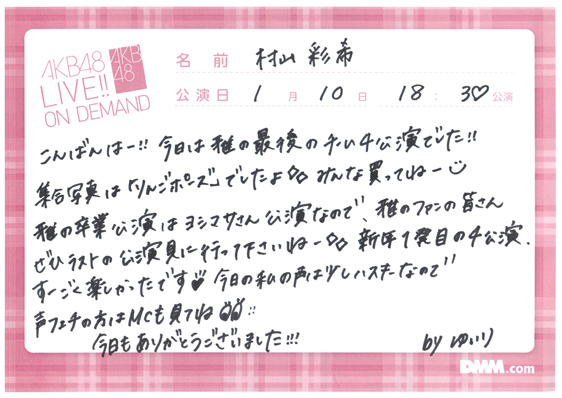 AKB48
LIVE!!
ON DEMAND
AKB
48
名前 村山彩希
公演日 1月10日 18:30公演
こんばんはー!! 今日は雅の最後のチーム4公演でした!!
集合写真は「りんごポーズ」でしたよ みんな買ってねー
雅の卒業公演はヨシマサさん公演なので、雅のファンの皆さん
ぜひラストの公演見に行って下さいねー 新年1発目の4公演、
すーごく楽しかったです♥ 今日の私の声は少しハスキーなので
声フェチの方はMCも見てね
今日もありがとうございました!!!
by ゆいり
DMM.com